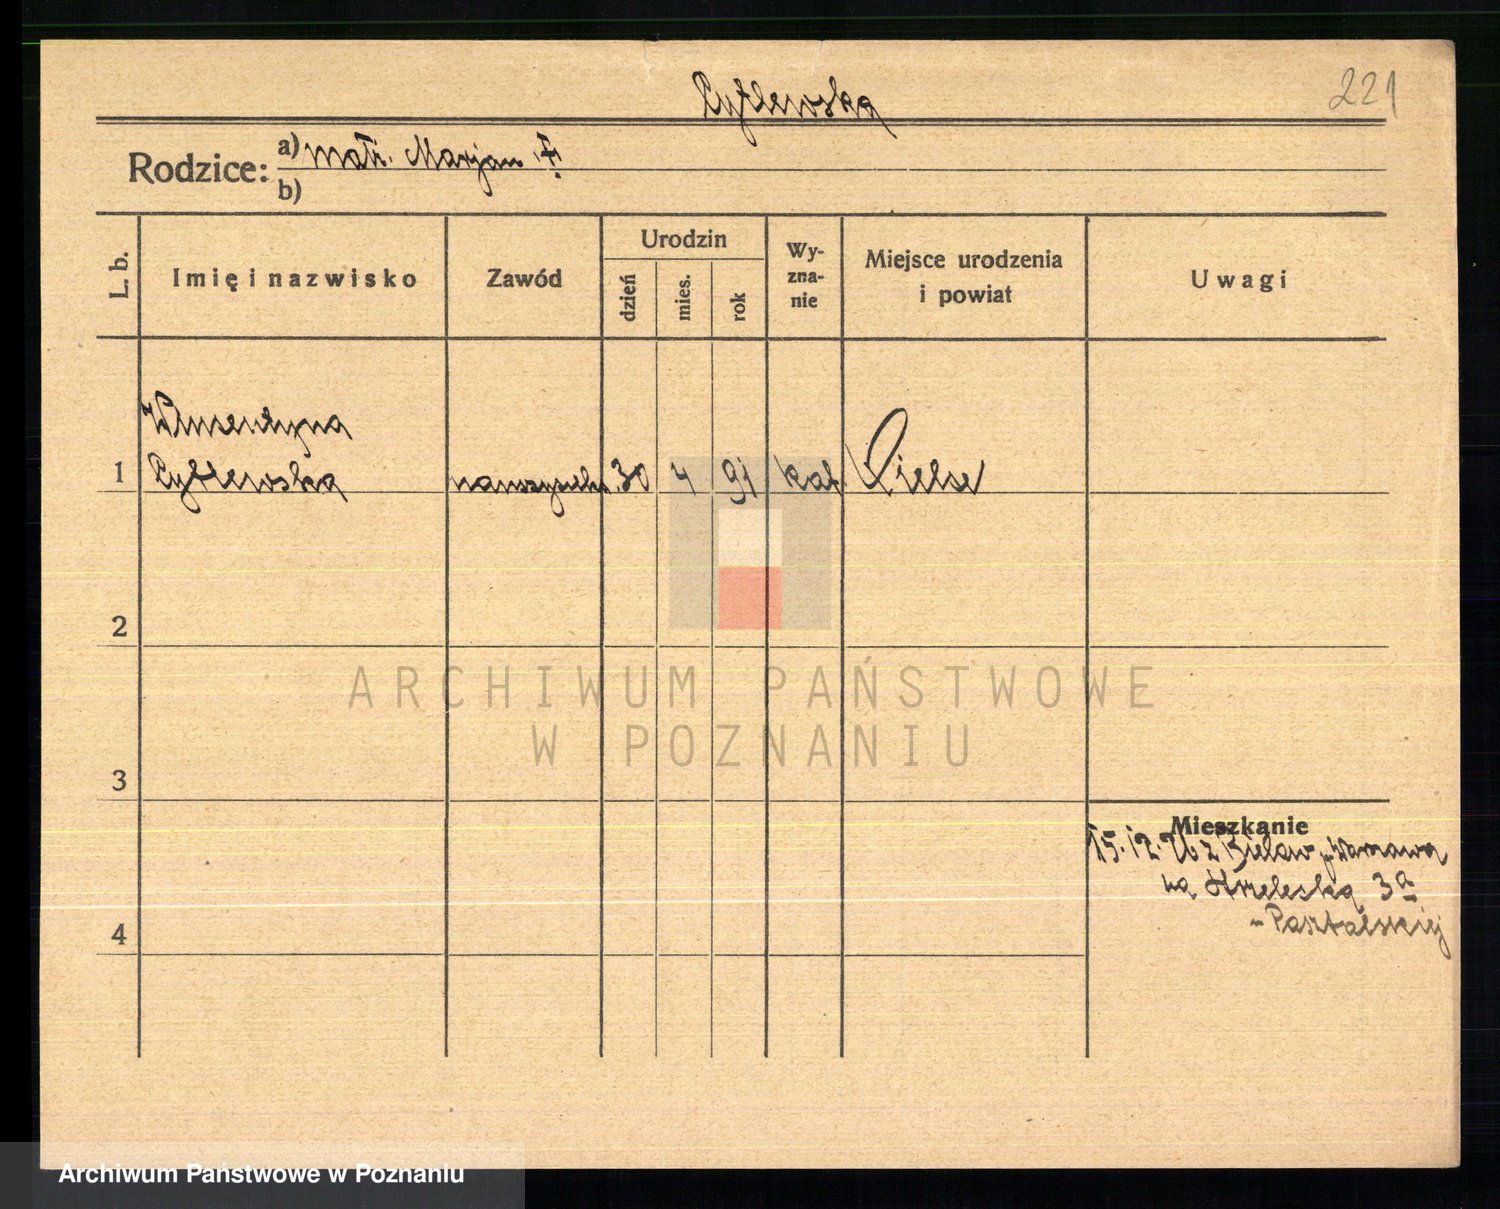 Pytlewska
221
Rodzice:
a) Matr. Marjan
b)
L. b.
Imię i nazwisko
Zawód
Urodzin
dzień
mies.
rok
Wy-
zna-
nie
Miejsce urodzenia
i powiat
Uwagi
Klementyna
1 Pytlewska 30 4 91 kat.
2
3
4
Mieszkanie
15.12.26 z Bielaw p. Warszawa
na Strzelecką 3a
ARCHIWUM PAŃSTWOWE
W POZNANIU
Archiwum Państwowe w Poznaniu